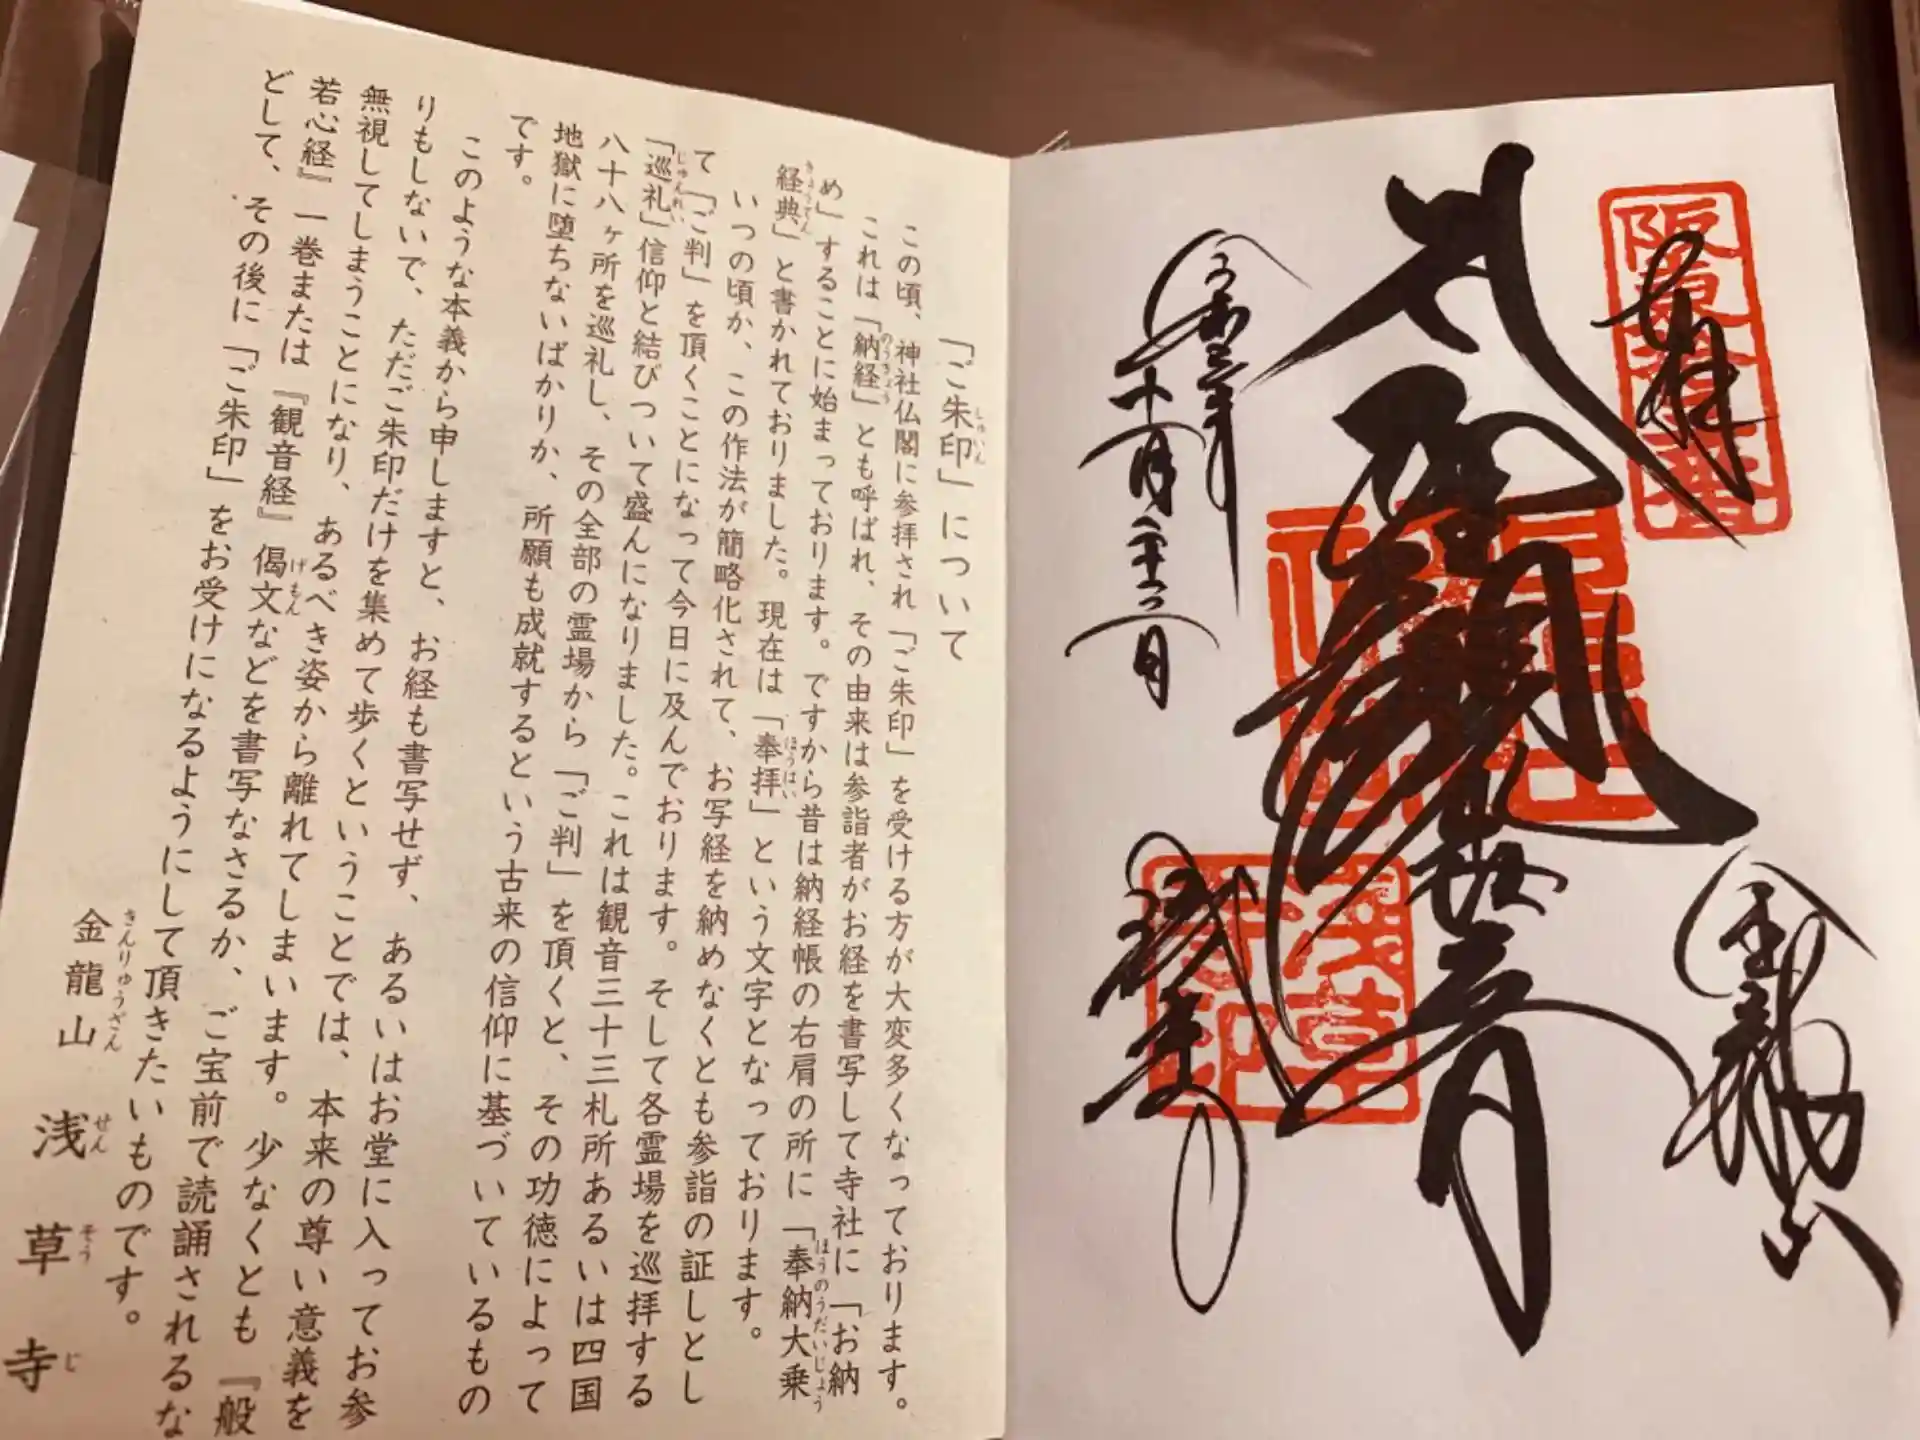 「ご朱印」について
この頃、神社仏閣に参拝され「ご朱印」を受ける方が大変多くなっております。
これは「納経」とも呼ばれ、その由来は参詣者がお経を書写して寺社に「お納
め」することに始まっております。ですから昔は納経帳の右肩の所に「奉納大乗
経典」と書かれておりました。現在は「奉拝」という文字となっております。
いつの頃か、この作法が簡略化されて、お写経を納めなくとも参詣の証しとし
て「ご判」を頂くことになって今日に及んでおります。そして各霊場を巡拝する
「巡礼」信仰と結びついて盛んになりました。これは観音三十三札所あるいは四国
八十八ヶ所を巡礼し、その全部の霊場から「ご判」を頂くと、その功徳によって
地獄に堕ちないばかりか、所願も成就するという古来の信仰に基づいているもの
です。
このような本義から申しますと、お経も書写せず、あるいはお堂に入ってお参
りもしないで、ただご朱印だけを集めて歩くということでは、本来の尊い意義を
無視してしまうことになり、あるべき姿から離れてしまいます。少なくとも『般
若心経』一巻または『観音経』偈文などを書写なさるか、ご宝前で読誦されるな
どして、その後に「ご朱印」をお受けになるようにして頂きたいものです。
金龍山 浅草寺
しゅいん
のうきょう
ほうのうだいじょう
きょうてん
ほうはい
じゅんれい
げもん
きんりゅうざん
せんそうじ
奉拝
金龍山
聖観世音
十一月二十二日
浅草寺
浅草寺印